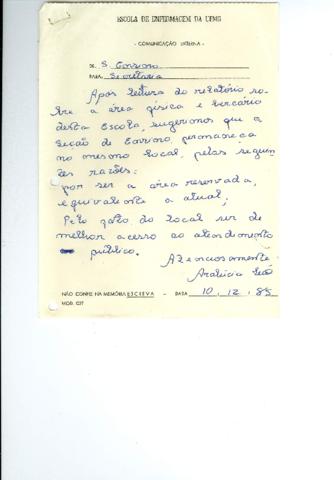 ESCOLA DE ENFERMAGEM DA UFMG
- COMUNICAÇÃO INTERNA -
DE S. Ensino
PARA Secretaria
Após leitura do relatório so-
bre a área física e berçário
desta Escola, sugerimos que a
Seção de Ensino permaneça
no mesmo local, pelas seguin
tes razões:
por ser a área reservada,
equivalente a atual;
Pelo fato do local ser de
melhor acesso ao atendimento
público.
Atenciosamente
Leão
NÃO CONFIE NA MEMÓRIA ESCREVA - DATA 10.12.85
MOD. 027